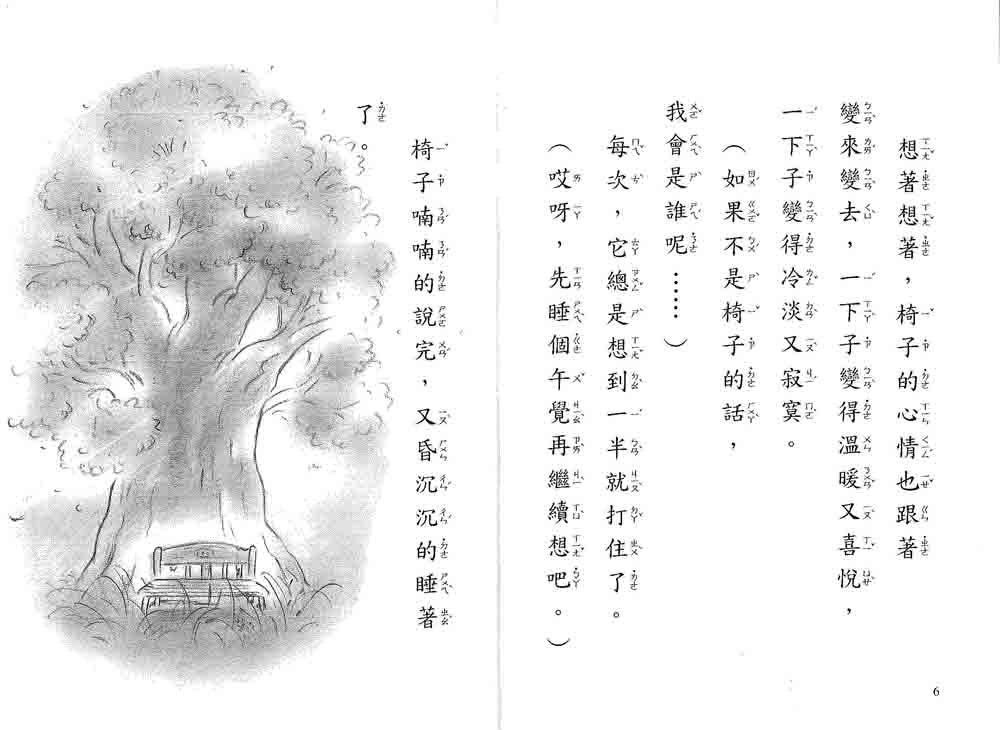 想著想著，椅子的心情也跟著
變來變去，一下子變得溫暖又喜悅，
一下子變得冷淡又寂寞。
（如果不是椅子的話，
我會是誰呢……）
每次，它總是想到一半就打住了。
（哎呀，先睡個午覺再繼續想吧。）
椅子喃喃的說完，又昏沉沉的睡著
了。
6